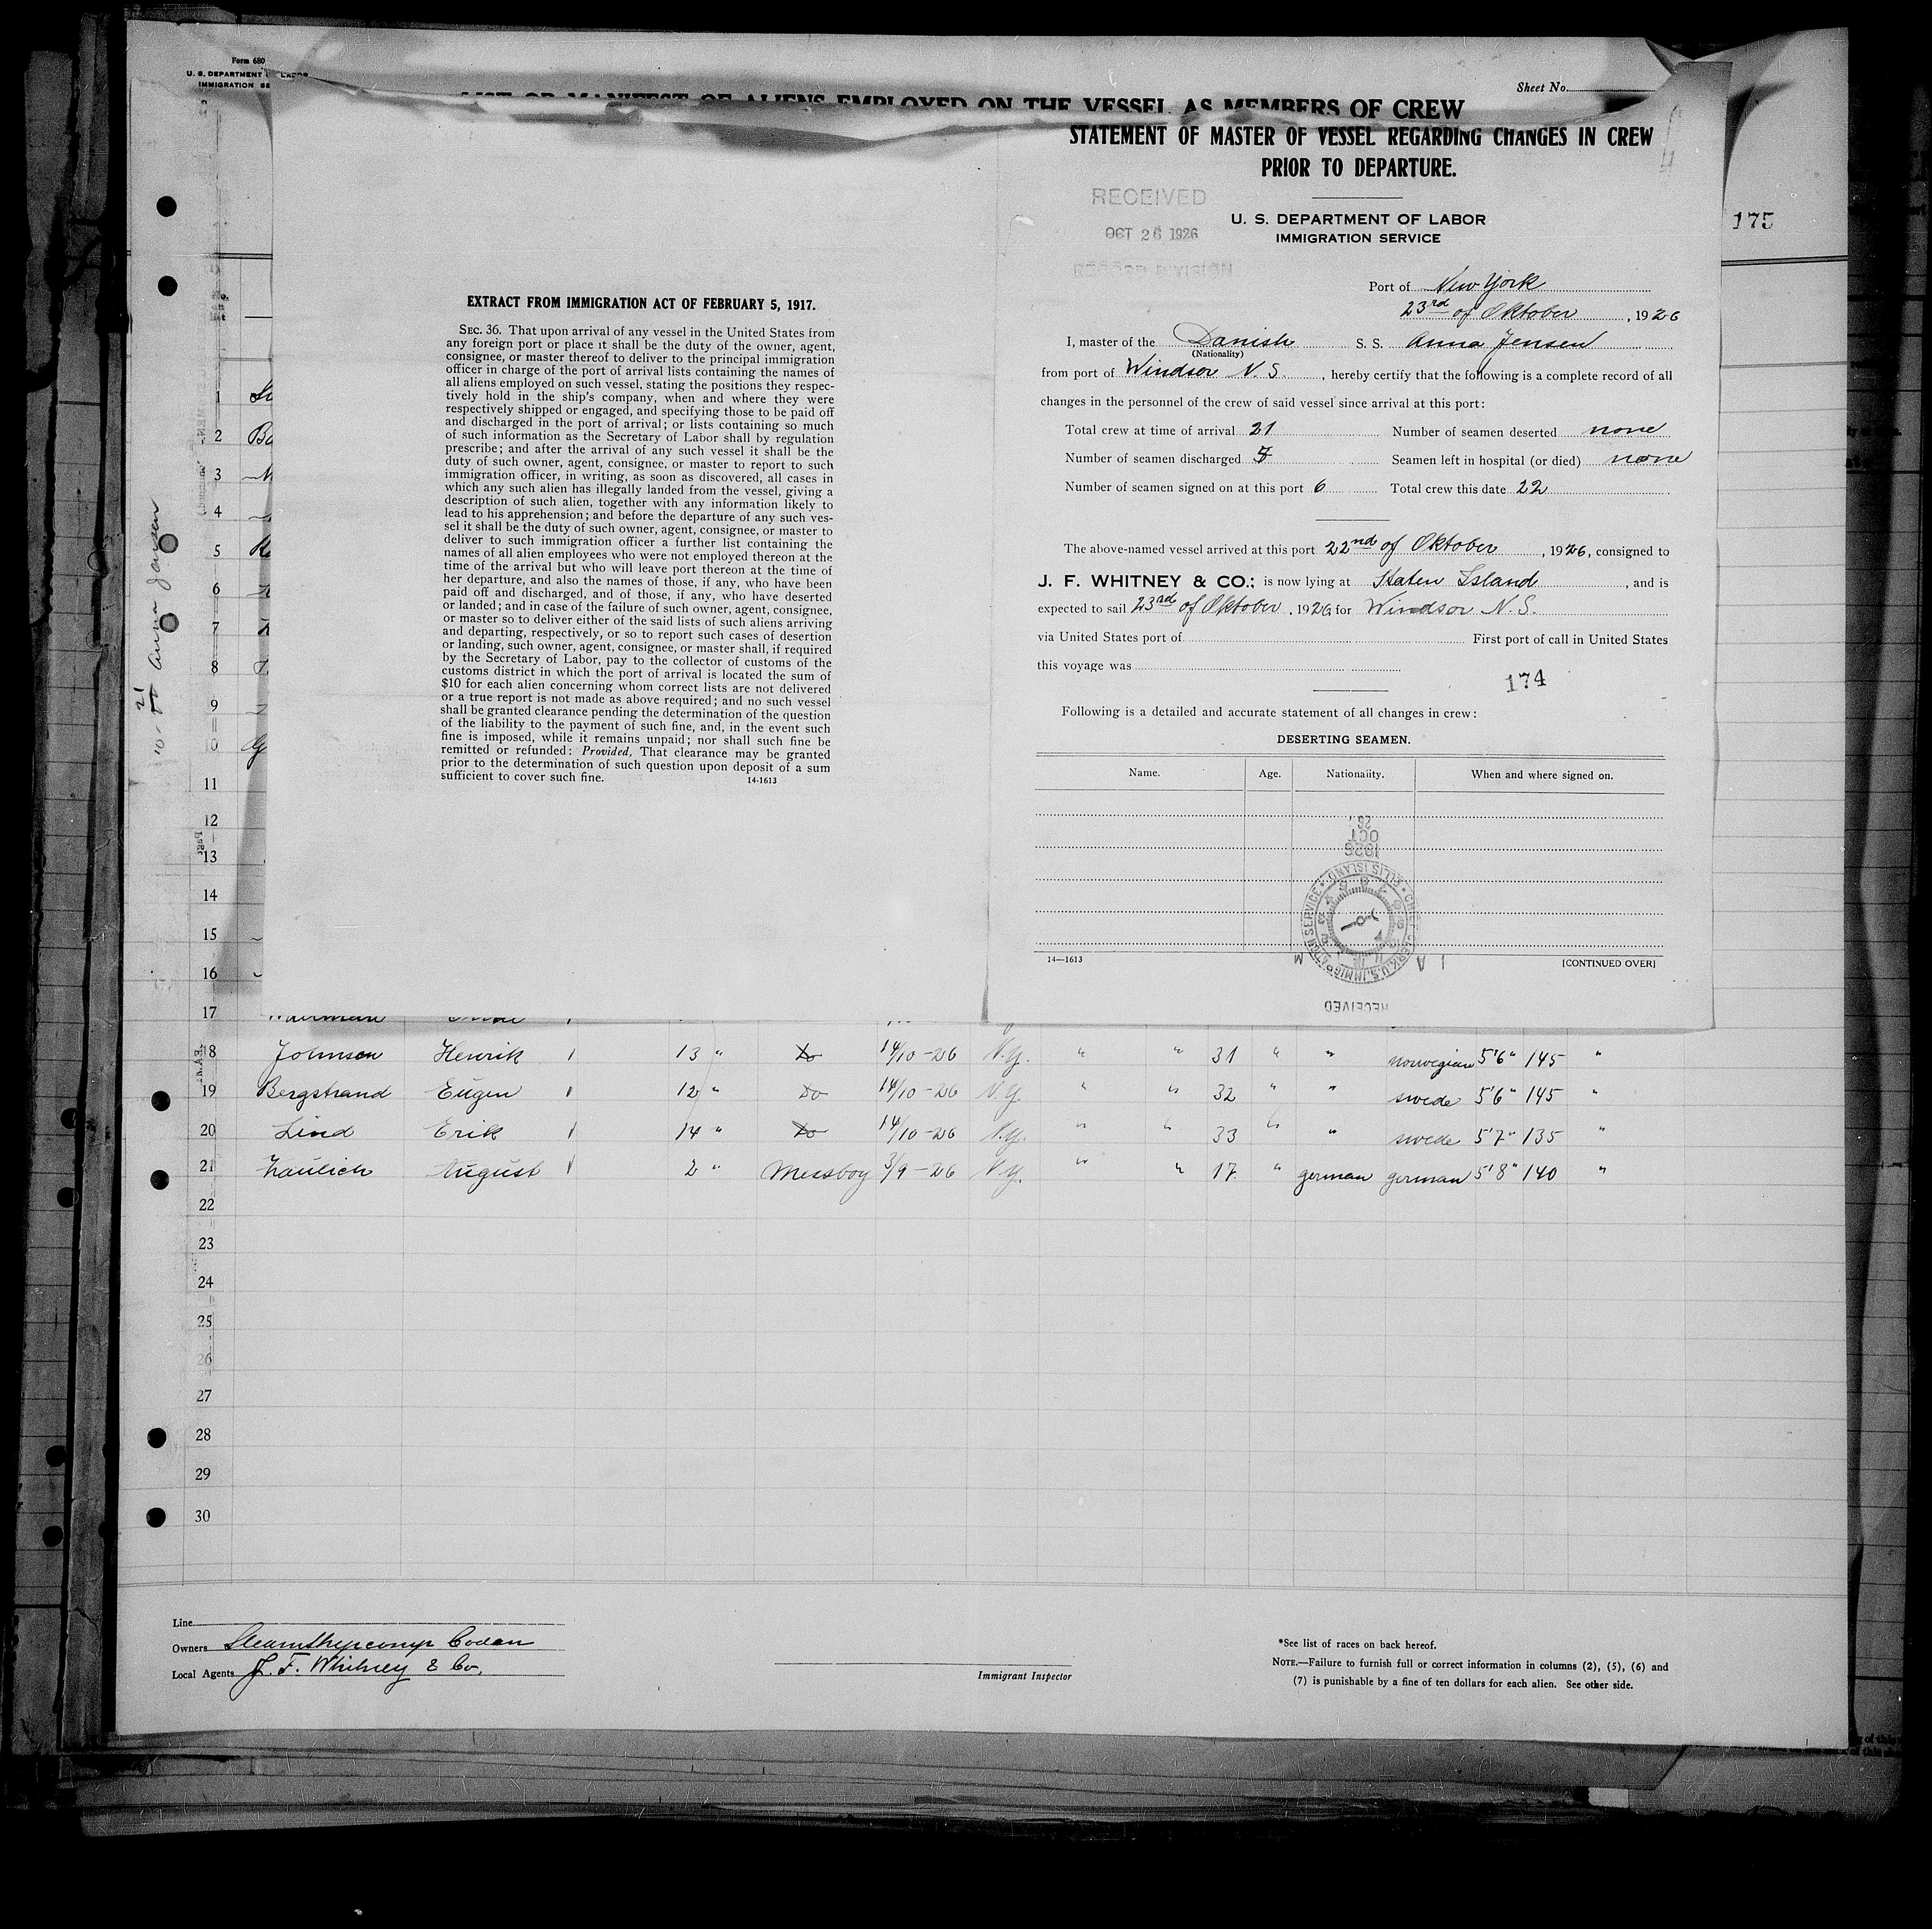 Form 680
U. S. DEPARTMENT
IMMIGRATION
Sheet No.
LIST OR MANIFEST OF ALIENS EMPLOYED ON THE VESSEL AS MEMBERS OF CREW
175
EXTRACT FROM IMMIGRATION ACT OF FEBRUARY 5, 1917.
SEC. 36. That upon arrival of any vessel in the United States from
any foreign port or place it shall be the duty of the owner, agent,
consignee, or master thereof to deliver to the principal immigration
officer in charge of the port of arrival lists containing the names of
all aliens employed on such vessel, stating the positions they respec-
tively hold in the ship's company, when and where they were
respectively shipped or engaged, and specifying those to be paid off
and discharged in the port of arrival; or lists containing so much
of such information as the Secretary of Labor shall by regulation
prescribe; and after the arrival of any such vessel it shall be the
duty of such owner, agent, consignee, or master to report to such
immigration officer, in writing, as soon as discovered, all cases in
which any such alien has illegally landed from the vessel, giving a
description of such alien, together with any information likely to
lead to his apprehension; and before the departure of any such ves-
sel it shall be the duty of such owner, agent, consignee, or master to
deliver to such immigration officer a further list containing the
names of all alien employees who were not employed thereon at the
time of the arrival but who will leave port thereon at the time of
her departure, and also the names of those, if any, who have been
paid off and discharged, and of those, if any, who have deserted
or landed; and in case of the failure of such owner, agent, consignee,
or master so to deliver either of the said lists of such aliens arriving
and departing, respectively, or so to report such cases of desertion
or landing, such owner, agent, consignee, or master shall, if required
by the Secretary of Labor, pay to the collector of customs of the
customs district in which the port of arrival is located the sum of
$10 for each alien concerning whom correct lists are not delivered
or a true report is not made as above required; and no such vessel
shall be granted clearance pending the determination of the question
of the liability to the payment of such fine, and, in the event such
fine is imposed, while it remains unpaid; nor shall such fine be
remitted or refunded: Provided, That clearance may be granted
prior to the determination of such question upon deposit of a sum
sufficient to cover such fine. 14-1613
STATEMENT OF MASTER OF VESSEL REGARDING CHANGES IN CREW
PRIOR TO DEPARTURE.
RECEIVED
OCT 26 1926
RECORD DIVISION
U. S. DEPARTMENT OF LABOR
IMMIGRATION SERVICE
Port of New York
23rd of Oktober, 1926
I, master of the Danish S. S. Anna Jensen
(Nationality)
from port of Windsor N.S., hereby certify that the following is a complete record of all
changes in the personnel of the crew of said vessel since arrival at this port:
Total crew at time of arrival 21 Number of seamen deserted none
Number of seamen discharged 5 Seamen left in hospital (or died) none
Number of seamen signed on at this port 6 Total crew this date 22
The above-named vessel arrived at this port 22nd of Oktober, 1926, consigned to
J. F. WHITNEY & CO.; is now lying at Staten Island, and is
expected to sail 23rd of Oktober, 1926 for Windsor N.S.
via United States port of First port of call in United States
this voyage was
174
Following is a detailed and accurate statement of all changes in crew:
DESERTING SEAMEN.
Name. Age. Nationality. When and where signed on.
1926
OCT
26
ELLIS ISLAND
RECEIVED
14—1613 [CONTINUED OVER]
Anna Jensen
1
2 Bo
3
4
5
6
7
8
9
10
11
12
13
14
15
16
17
18 Johnson Henrik 13 " Do 14/10-26 N.Y. " " 31 " " norwegian 5'6" 145 "
19 Bergstrand Eugen 12 " Do 14/10-26 N.Y. " " 32 " " swede 5'6" 145 "
20 Lind Erik 14 " Do 14/10-26 N.Y. " " 33 " " swede 5'7" 135 "
21 Kaulich August 2 " Messboy 3/9-26 N.Y. " " 17 " german german 5'8" 140 "
22
23
24
25
26
27
28
29
30
Line
Owners Steamshipcomp Codan
Local Agents J. F. Whitney & Co.
Immigrant Inspector
*See list of races on back hereof.
NOTE.—Failure to furnish full or correct information in columns (2), (5), (6) and
(7) is punishable by a fine of ten dollars for each alien. See other side.